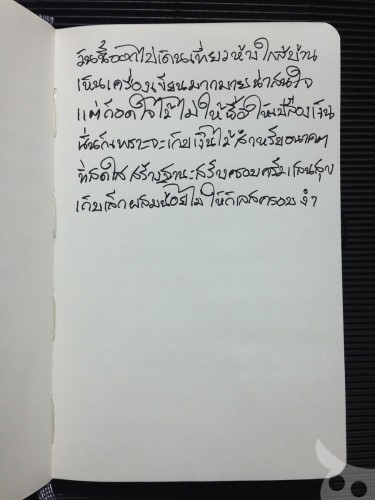 วันนี้ออกไปเดินเที่ยวห้างใกล้บ้าน
เห็นเครื่องเขียนมากมายน่าสนใจ
แต่ก็อดใจไว้ไม่ให้ซื้อให้เปลืองเงิน
นั่นก็เพราะจะเก็บเงินไว้สำหรับอนาคต
ที่สดใส สร้างฐานะสร้างครอบครัวแสนสุข
เก็บเล็กผสมน้อยไม่ให้กิเลสครอบงำ